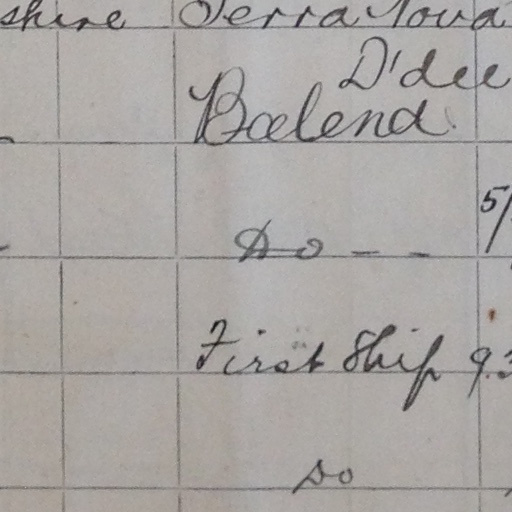 shire Terra Nova
D'dee
Baelena
Do - -
5/
First Ship 9.
Do